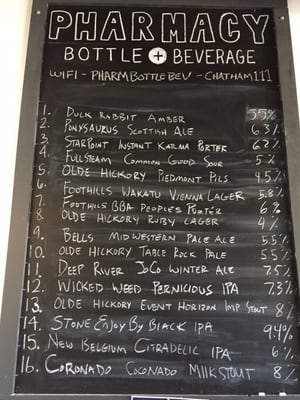 PHARMACY
BOTTLE + BEVERAGE
WIFI - PHARMBOTTLEBEV - CHATHAM111
1. DUCK RABBIT AMBER 5.5%
2. PONYSAURUS SCOTTISH ALE 6.3%
3. STARPOINT INSTANT KARMA PORTER 6.2%
4. FULLSTEAM COMMON GOOD SOUR 5%
5. OLDE HICKORY PIEDMONT PILS 4.5%
6. FOOTHILLS WAKATU VIENNA LAGER 5.8%
7. FOOTHILLS BBA PEOPLES PORTER 6%
8. OLDE HICKORY RUBY LAGER 4%
9. BELLS MIDWESTERN PALE ALE 5.5%
10. OLDE HICKORY TABLE ROCK PALE 5.5%
11. DEEP RIVER JOCO WINTER ALE 7.5%
12. WICKED WEED PERNICIOUS IPA 7.3%
13. OLDE HICKORY EVENT HORIZON IMP STOUT 8%
14. STONE ENJOY BY BLACK IPA 9.4%
15. NEW BELGIUM CITRADELIC IPA 6%
16. CORONADO COCONADO MILK STOUT 8%